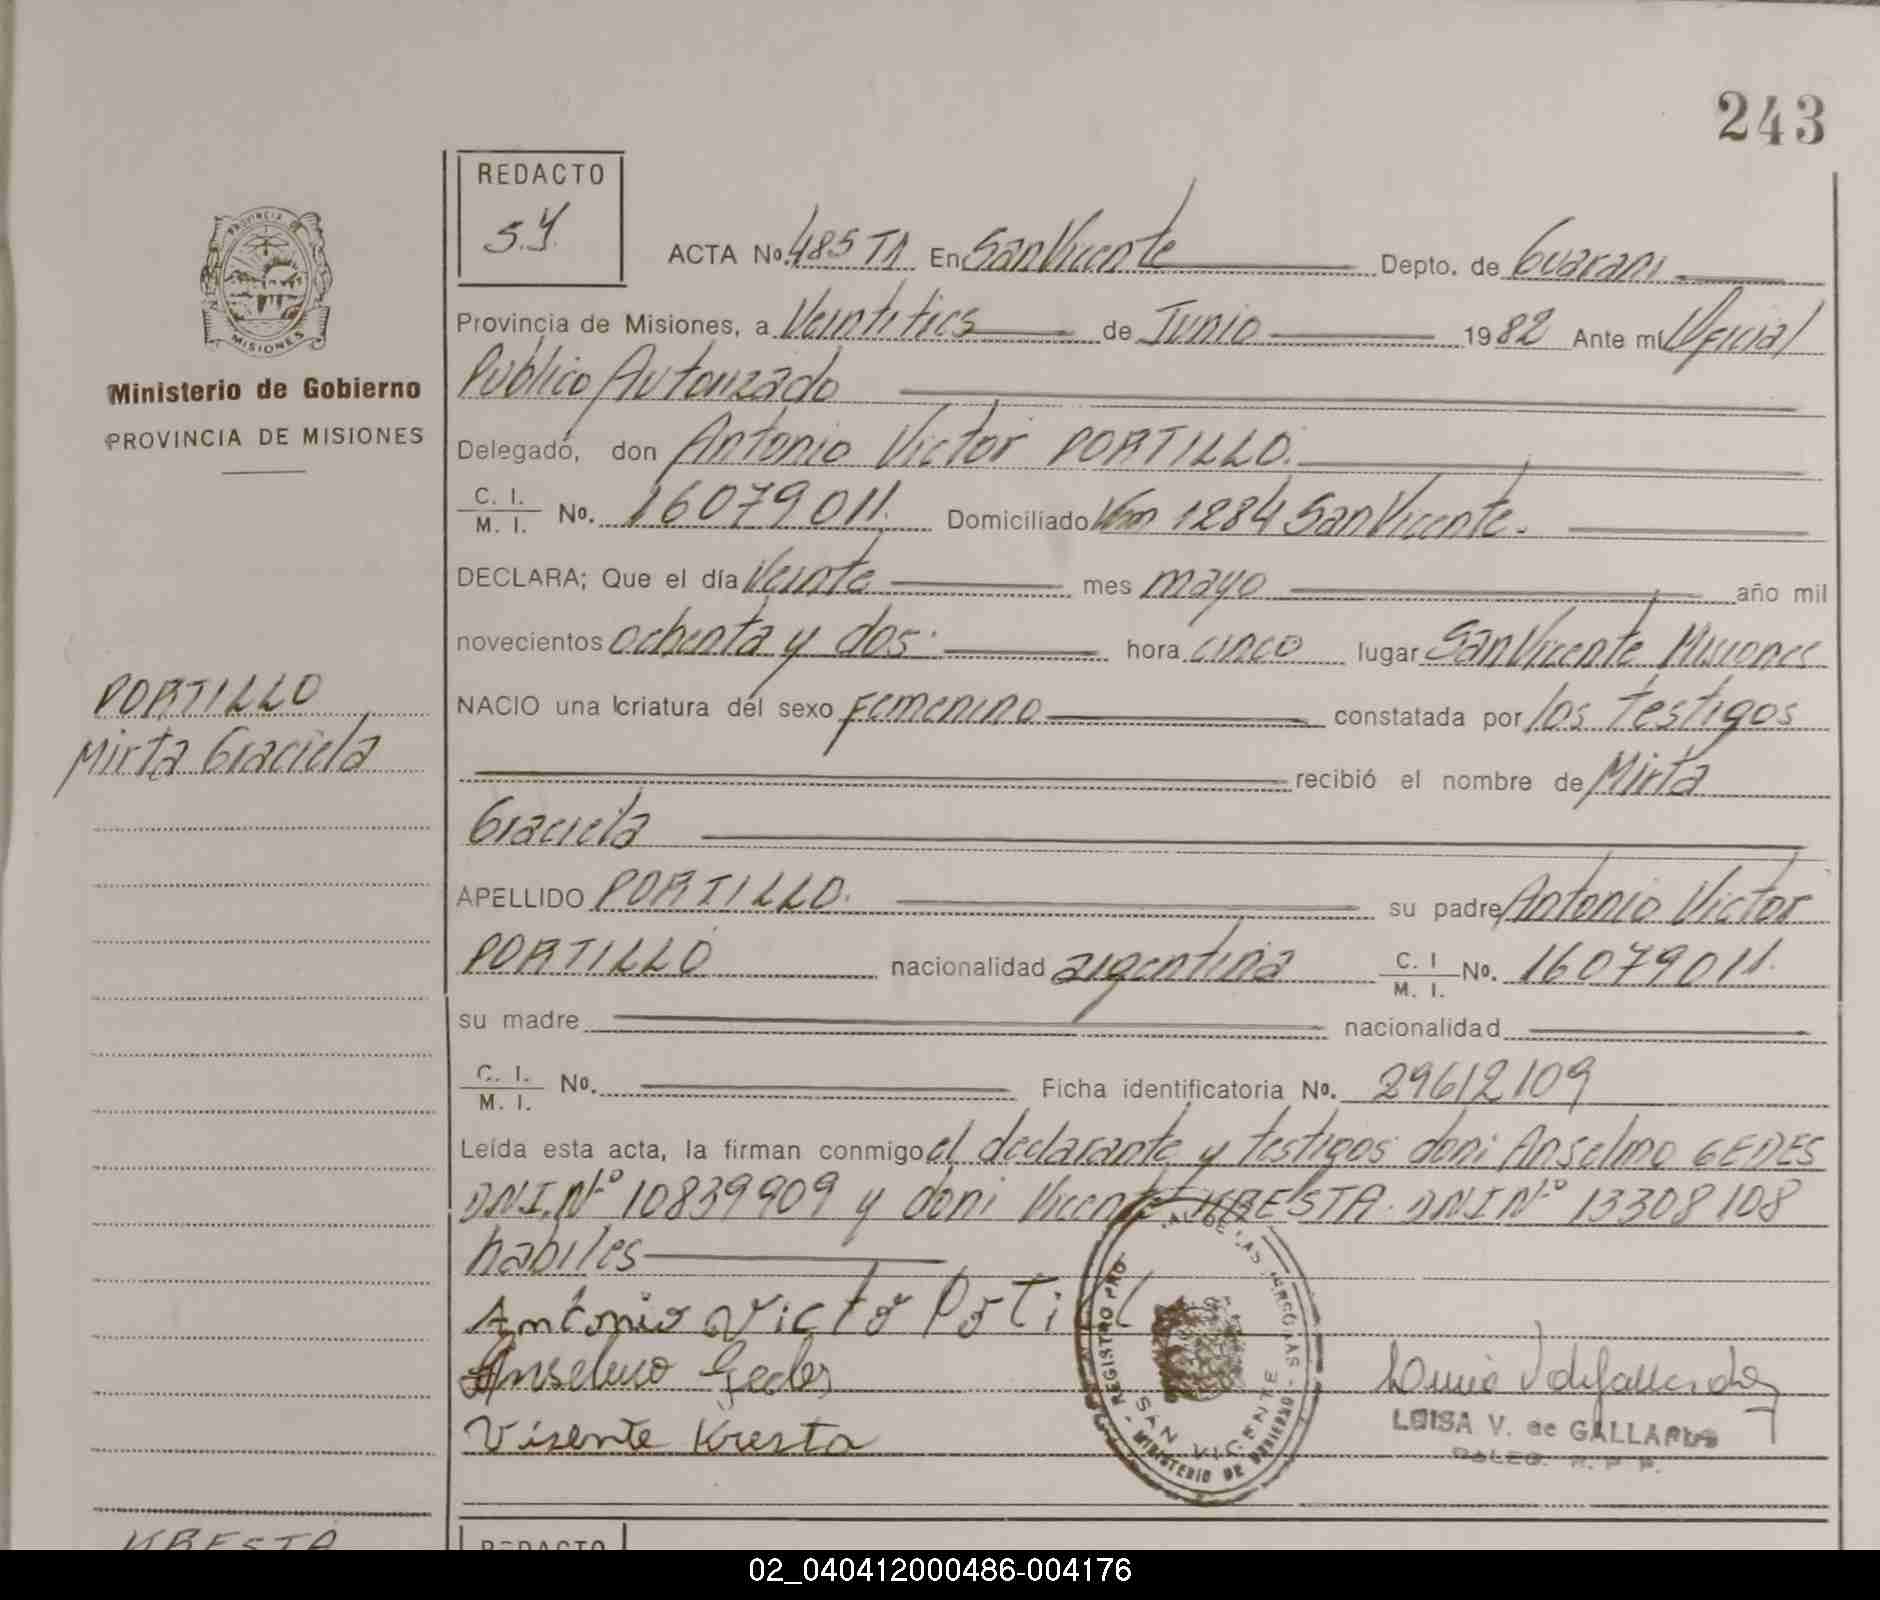 243
REDACTO
S.Y.
ACTA No. 485 T1 En San Vicente Depto. de Guarani
PROVINCIA
MISIONES
Provincia de Misiones, a Veintitres de Junio 1982 Ante mi Oficial
Publico Autorizado
Ministerio de Gobierno
PROVINCIA DE MISIONES
Delegado, don Antonio Victor PORTILLO.
C. I. / M. I. No. 16079011. Domiciliado Km 1284 San Vicente.
DECLARA; Que el día Veinte mes mayo año mil
novecientos ochenta y dos. hora cinco lugar San Vicente Misiones
PORTILLO
Mirta Graciela
NACIO una criatura del sexo Femenino constatada por los testigos
recibió el nombre de Mirta
Graciela
APELLIDO PORTILLO. su padre Antonio Victor
PORTILLO nacionalidad argentina C. I / M. I. No. 16079011.
su madre nacionalidad
C. I. / M. I. No. Ficha identificatoria No. 29612109
Leída esta acta, la firman conmigo el declarante y testigos don: Anselmo GEDES
DNI. Nº 10839909 y don: Vicente KRESTA. DNI Nº 13308108
habiles
Antonio Victo Portill
Anselmo Gedes
Visente Kresta
REGISTRO PRO AL DE LAS PERSONAS
SAN VICENTE
MINISTERIO DE GOBIERNO
LUISA V. de GALLARDO
DELEG. R. P. P.
KRESTA
REDACTO
02_040412000486-004176